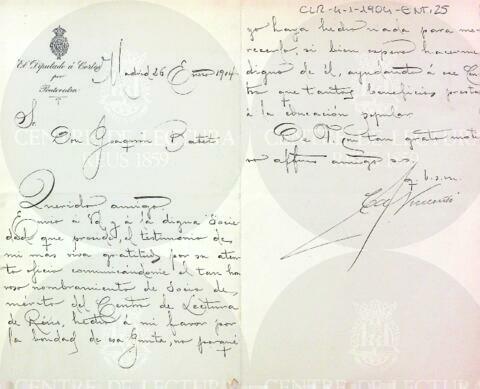 CLR-4-1-1904-ENT.25
El Diputado á Cortes
por
Pontevedra
Madrid 26 Enero 1904
Sr
Don Joaquin Batet
Querido amigo
Envio á Vd y á la digna Socie
dad que preside, el testimonio de
mi mas viva gratitud por su aten
to oficio comunicandome el tan hon
roso nombramiento de Socio de
mérito del Centro de Lectura
de Reus, hecho á mi favor por
la bondad de esa Junta, no porque
yo haya hecho nada para me
recerlo, si bien espero hacerme
digno de él, ayudando á ese Cen
tro que tantos beneficios presta
á la educación popular
De V. muy grato
affmo amigo s.s.
q. b. s. m.
Vincenti
CENTRE DE LECTURA
REUS 1859
CENTRE DE LECTURA
REUS 1859
CENTRE DE LECTURA
CENTRE DE LECTURA